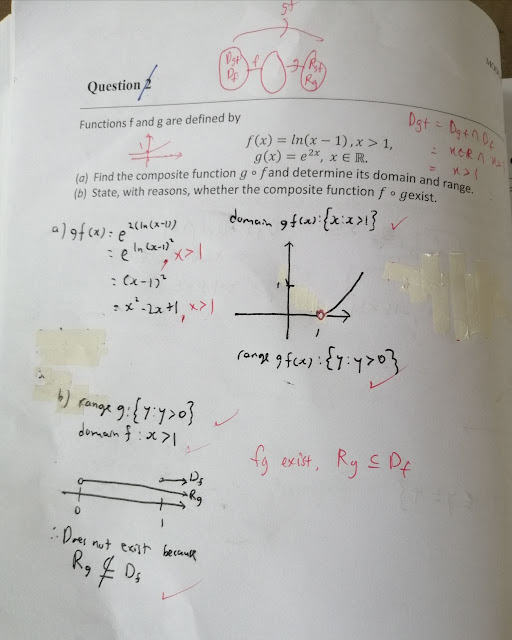 gf
Dgf
Df
f
g
Rgf
Rg
Question 2
Functions f and g are defined by
f(x) = ln(x − 1), x > 1,
g(x) = e^{2x}, x ∈ ℝ.
Dgf = Dgf ∩ Df
= x∈R ∩ x>1
= x>1
(a) Find the composite function g ∘ f and determine its domain and range.
(b) State, with reasons, whether the composite function f ∘ gexist.
a) gf(x) = e^{2(ln(x-1))}
= e^{ln(x-1)^2}, x>1
= (x-1)^2
= x^2-2x+1, x>1
domain gf(x): {x: x>1} ✓
1
1
range gf(x): {y: y>0} ✓
b) range g: {y: y>0} ✓
domain f: x>1
Df
Rg
0
1
∴ Does not exist because
Rg ⊈ Df ✓
fg exist, Rg ⊆ Df